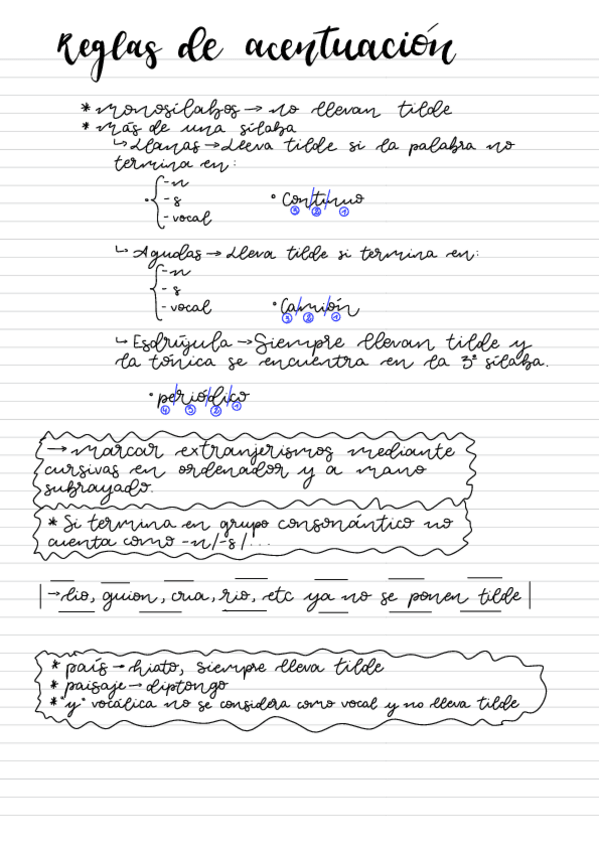 Reglas de acentuación
* monosílabos → no llevan tilde
* más de una sílaba
↳ Llanas → Lleva tilde si la palabra no
termina en:
- n
- s
- vocal
• Con/ti/nuo
3 2 1
↳ Agudas → Lleva tilde si termina en:
- n
- s
- vocal
• Ca/mi/ón
3 2 1
↳ Esdrújula → Siempre llevan tilde y
la tónica se encuentra en la 3ª sílaba.
• pe/rió/di/co
4 3 2 1
→ Marcar extranjerismos mediante
cursivas en ordenador y a mano
subrayado.
* Si termina en grupo consonántico no
cuenta como -n/-s/...
→ lio, guion, cria, rio, etc ya no se ponen tilde
* país → hiato, siempre lleva tilde
* paisaje → diptongo
* "y" vocálica no se considera como vocal y no lleva tilde